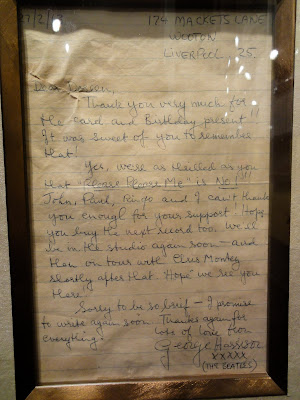 174 MACKETS LANE
WOOTON
LIVERPOOL 25.
Dear
Thank you very much for
the card and Birthday present!!
It was sweet of you to remember
that!
Yes, we're as thrilled as you
that "Please Please Me" is No 1!!
John, Paul, Ringo and I can't thank
you enough for your support. Hope
you buy the next record too. We'll
be in the studio again soon – and
then on tour with Chris Montez
shortly after that. Hope we see you
there!
Sorry to be so brief – I promise
to write again soon. Thanks again for
everything!
lots of love from
George Harrison
xxxxx
(THE BEATLES)